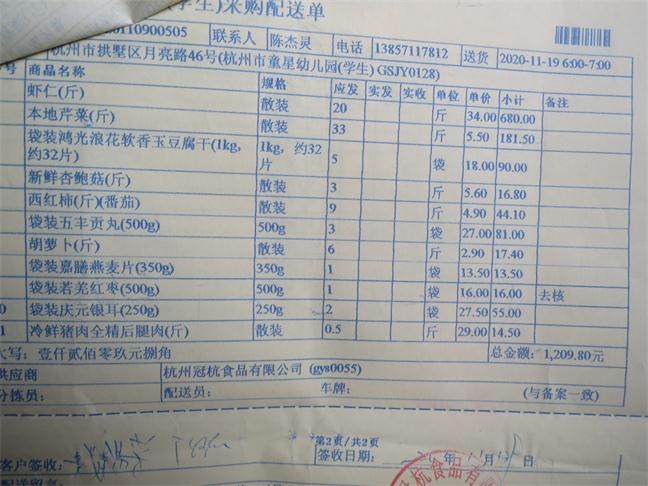 学生)采购配送单
0110900505 联系人 陈杰灵 电话 13857117812 送货 2020-11-19 6:00-7:00
杭州市拱墅区月亮路46号(杭州市童星幼儿园(学生) GSJY0128)
号 商品名称 规格 应发 实发 实收 单位 单价 小计 备注
虾仁(斤) 散装 20 斤 34.00 680.00
本地芹菜(斤) 散装 33 斤 5.50 181.50
袋装鸿光浪花软香玉豆腐干(1kg, 1kg, 约32 5 袋 18.00 90.00
约32片) 片
新鲜杏鲍菇(斤) 散装 3 斤 5.60 16.80
西红柿(斤)(番茄) 散装 9 斤 4.90 44.10
袋装五丰贡丸(500g) 500g 3 袋 27.00 81.00
胡萝卜(斤) 散装 6 斤 2.90 17.40
袋装嘉膳燕麦片(350g) 350g 1 袋 13.50 13.50
袋装若羌红枣(500g) 500g 1 袋 16.00 16.00 去核
0 袋装庆元银耳(250g) 250g 2 袋 27.50 55.00
1 冷鲜猪肉全精后腿肉(斤) 散装 0.5 斤 29.00 14.50
大写: 壹仟贰佰零玖元捌角 总金额: 1,209.80元
供应商 杭州冠杭食品有限公司 (gys0055)
分拣员: 配送员: 车牌: (与备案一致)
第2页/共2页
客户签收: 签收日期: 年 11月 日
冠杭食品有